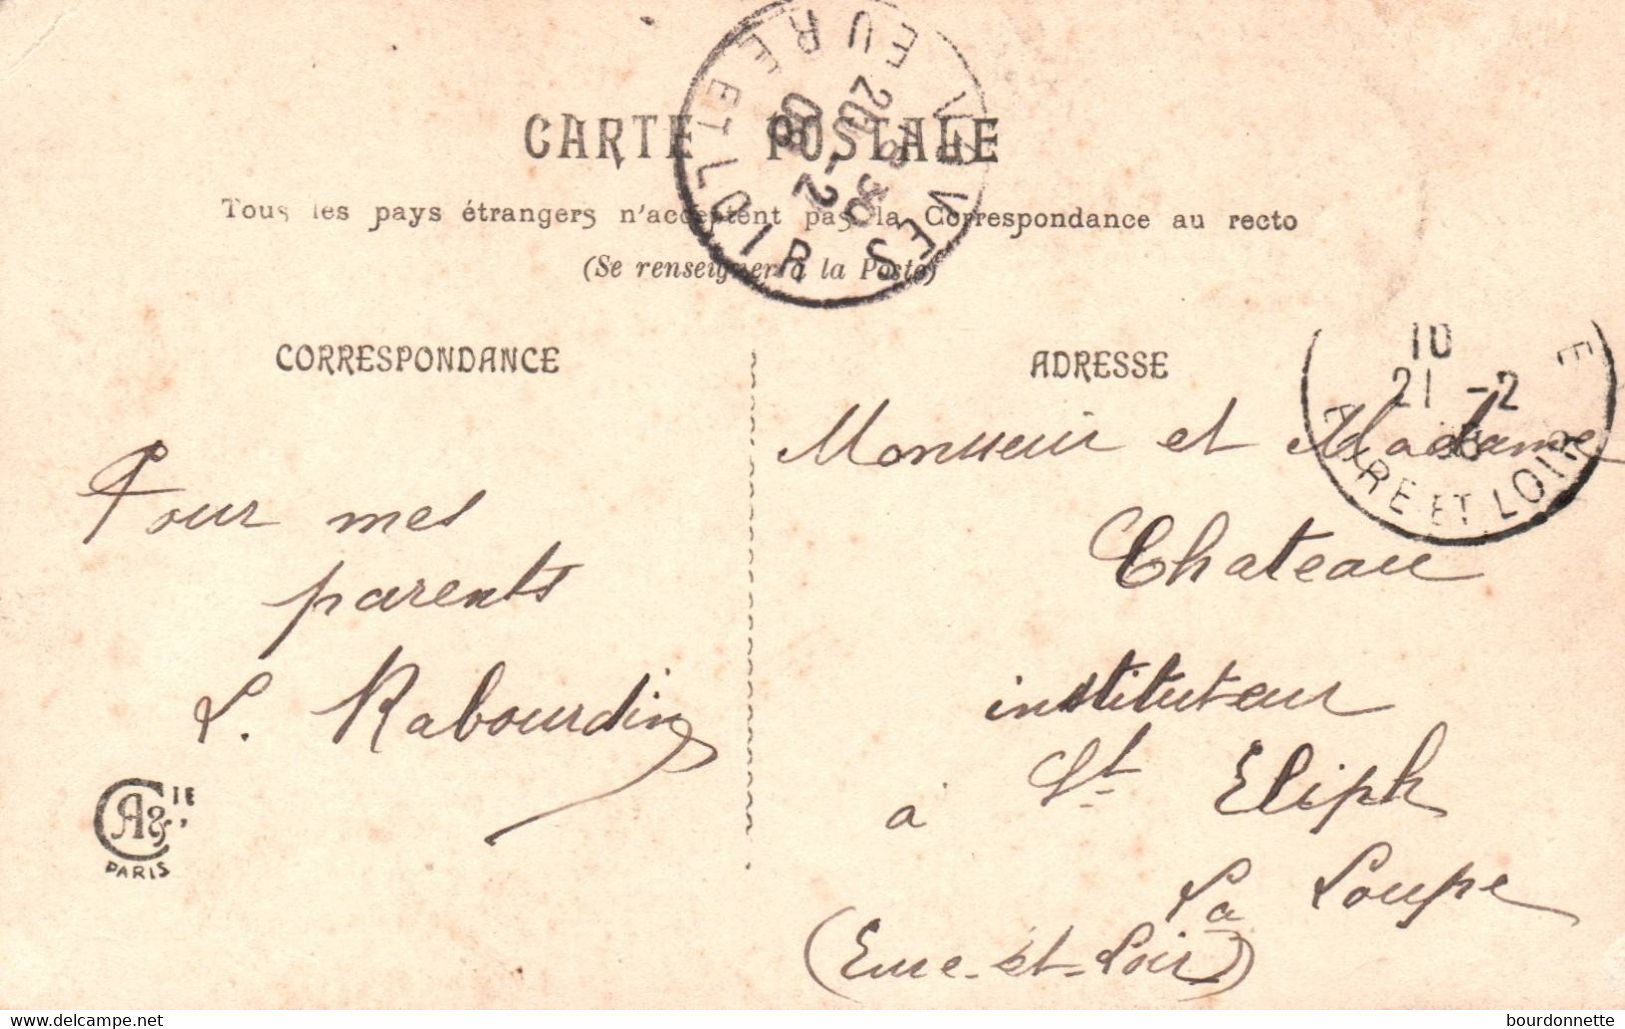 CARTE POSTALE
Tous les pays étrangers n'acceptent pas la Correspondance au recto
(Se renseigner à la Poste)
VOVES
EURE ET LOIR
18 30
20 -2
08
CORRESPONDANCE
Pour mes
parents
L. Rabourdin
A & CIE
PARIS
ADRESSE
10
21 -2
08
E
EURE ET LOIR
Monsieur et Madame
Chateau
instituteur
à St Eliph
La Loupe
(Eure-et-Loir)
www.delcampe.net
bourdonnette